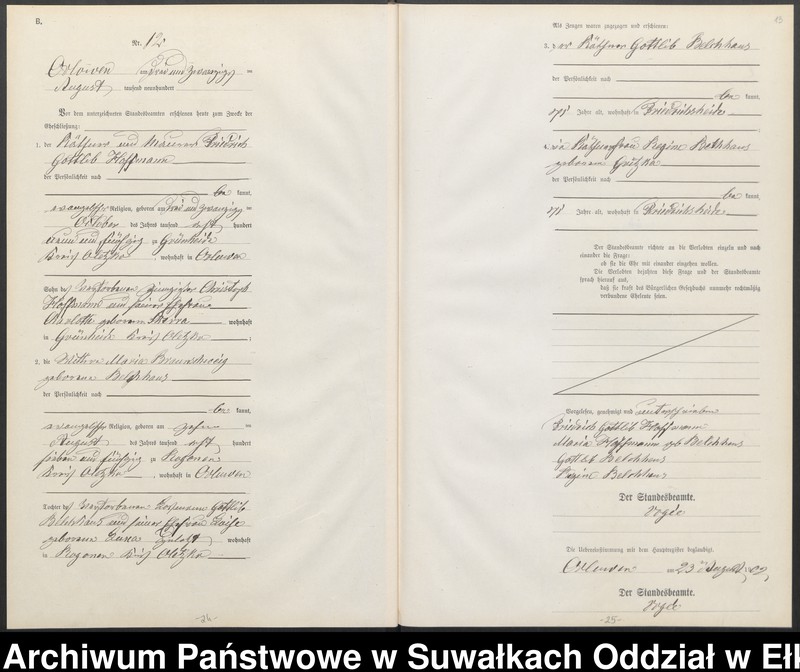 B.
Nr. 12
Orlowen am drei und zwanzigsten
August tausend neunhundert
Vor dem unterzeichneten Standesbeamten erschienen heute zum Zwecke der
Eheschließung:
1. der Käthner und Maurer Friedrich
Gottlib Hoffmann
der Persönlichkeit nach
be kannt,
evangelischer Religion, geboren am drei und zwanzigsten
October des Jahres tausend acht hundert
neun und fünfzig zu Grünheide
Kreis Oletzko, wohnhaft in Orlowen
Sohn des verstorbenen Christoph
Hoffmann und seiner Ehefrau
Charlotte geborenen wohnhaft
in Grünheide Kreis Oletzko;
2. die Wittwe Maria Braunschweig
geborene Belchhaus
der Persönlichkeit nach
be kannt,
evangelischer Religion, geboren am zehnten
August des Jahres tausend acht hundert
sieben und fünfzig zu Rogonnen
Kreis Oletzko, wohnhaft in Orlowen
Tochter des verstorbenen Gottlib
Belchhaus und seiner Ehefrau Louise
geborene wohnhaft
in Rogonnen Kreis Oletzko
-24-
13
Als Zeugen waren zugezogen und erschienen:
3. der Käthner Gottlib Belchhaus
der Persönlichkeit nach
be kannt,
Jahre alt, wohnhaft in Friedrichsheide
;
4. die Käthnerfrau Regine Belchhaus
geborene
der Persönlichkeit nach
be kannt,
Jahre alt, wohnhaft in Friedrichsheide
Der Standesbeamte richtete an die Verlobten einzeln und nach
einander die Frage:
ob sie die Ehe mit einander eingehen wollen.
Die Verlobten bejahten diese Frage und der Standesbeamte
sprach hierauf aus,
daß sie kraft des Bürgerlichen Gesetzbuchs nunmehr rechtmäßig
verbundene Eheleute seien.
Vorgelesen, genehmigt und unterschrieben
Friedrich Gottlib Hoffmann
Maria Hoffmann geb Belchhaus
Gottlib Belchhaus
Regine Belchhaus
Der Standesbeamte.
Die Uebereinstimmung mit dem Hauptregister beglaubigt.
Orlowen am 23 ten August
Der Standesbeamte.
-25-
Archiwum Państwowe w Suwałkach Oddział w Ełk